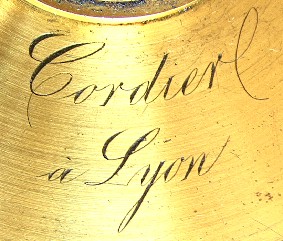 Cordier
à Lyon